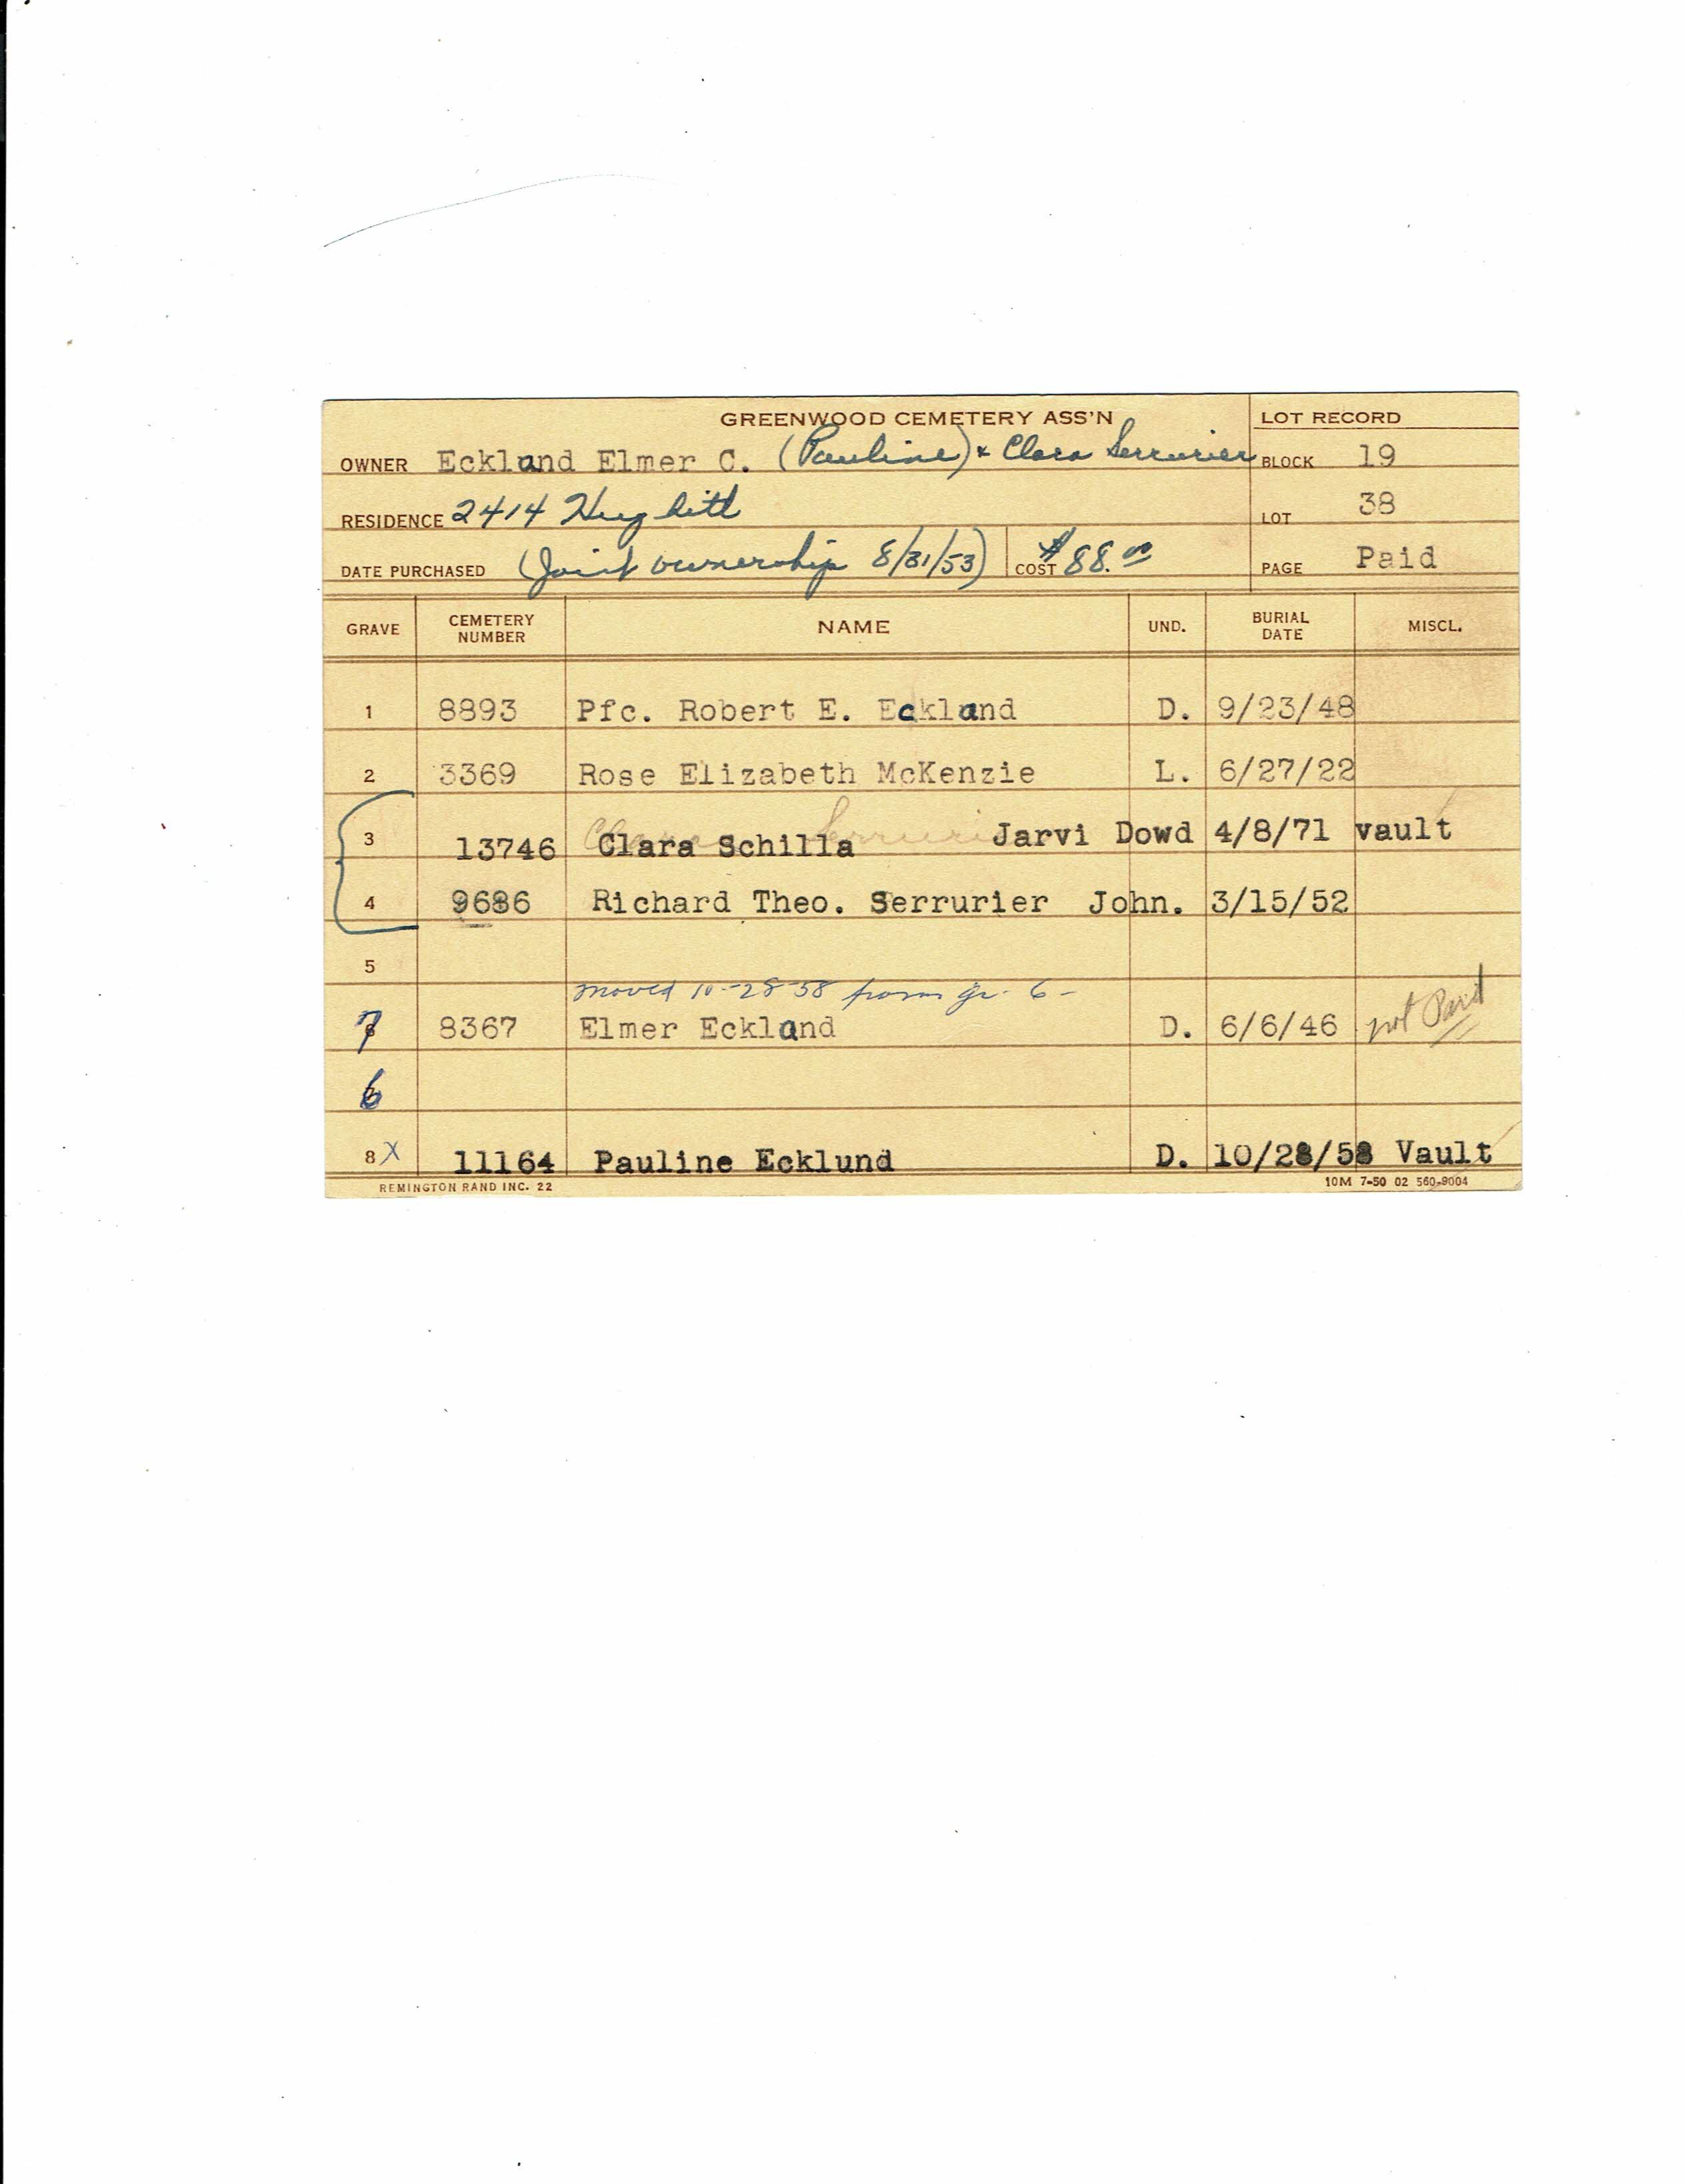 GREENWOOD CEMETERY ASS'N LOT RECORD
OWNER Eckland Elmer C. (Pauline) & Clara Serrurier BLOCK 19
RESIDENCE 2414 Hughitt LOT 38
DATE PURCHASED (Joint ownership 8/31/53) COST $88.00 PAGE Paid
GRAVE CEMETERY NUMBER NAME UND. BURIAL DATE MISCL.
1 8893 Pfc. Robert E. Eckland D. 9/23/48
2 3369 Rose Elizabeth McKenzie L. 6/27/22
3 13746 Clara Schilla Jarvi Dowd 4/8/71 vault
4 9686 Richard Theo. Serrurier John. 3/15/52
5
moved 10-28-58 from gr. 6-
7 8367 Elmer Eckland D. 6/6/46 not Paid
6
8 X 11164 Pauline Ecklund D. 10/28/58 Vault
REMINGTON RAND INC. 22 10M 7-50 02 560-9004